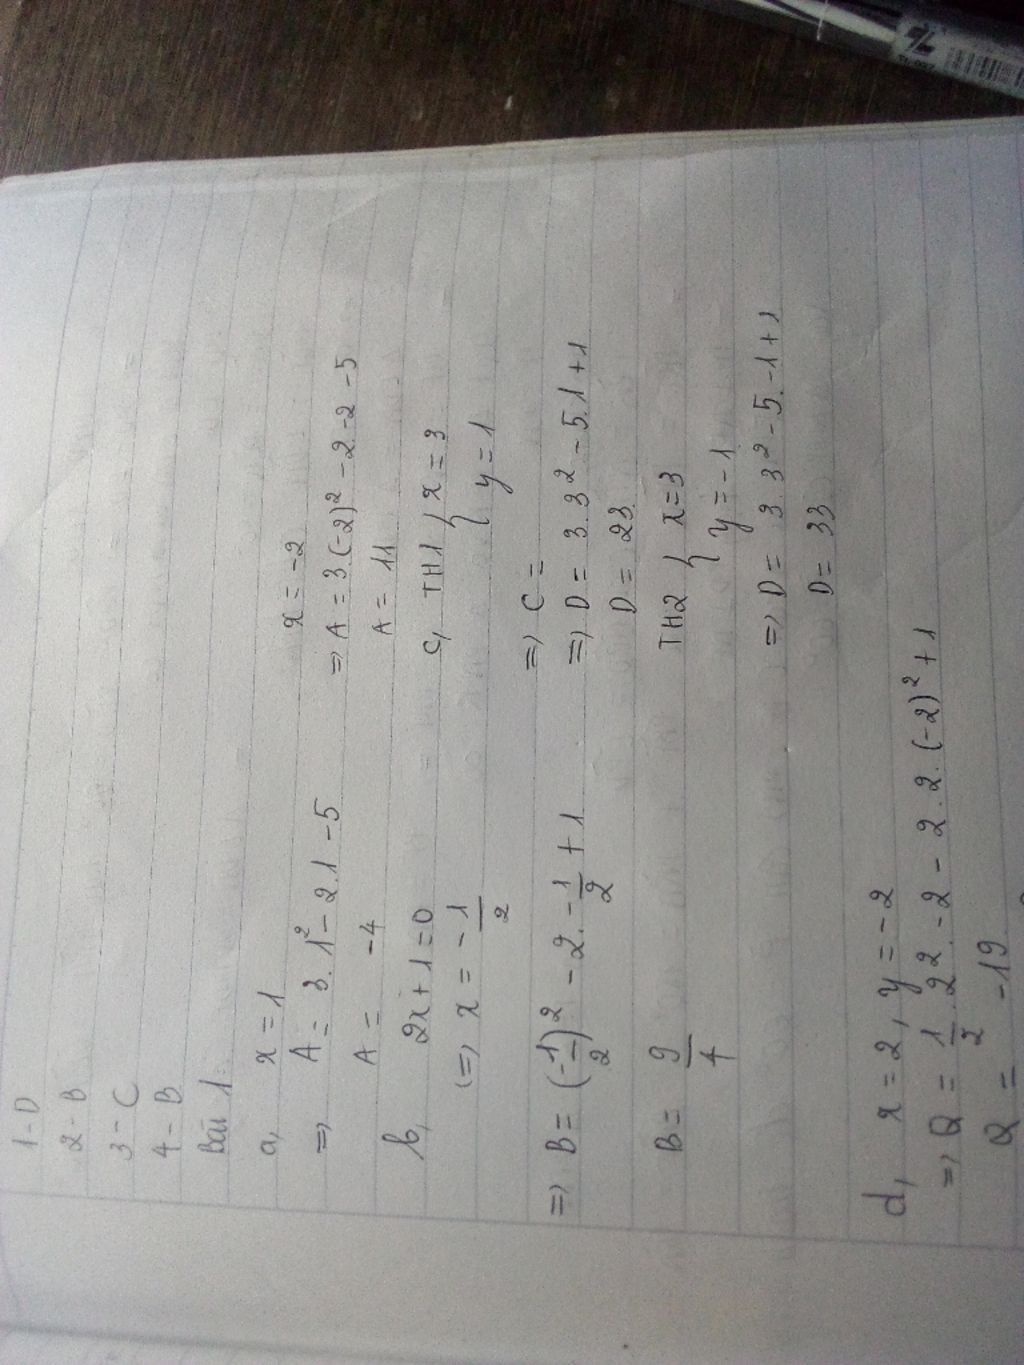 1-D
2-B
3-C
4-B
Bài 1:
a, x = 1
=> A = 3.1² - 2.1 - 5
A = -4
x = -2
=> A = 3(-2)² - 2.-2 - 5
A = 11
b, 2x + 1 = 0
(=> x = -1/2
=> B = (-1/2)² - 2.-1/2 + 1
B = 9/4
c, TH1 { x = 3
y = 1
=> C =
=> D = 3.3² - 5.1 + 1
D = 23
TH2 { x = 3
y = -1
=> D = 3.3² - 5.-1 + 1
D = 33
d, x = 2, y = -2
=> Q = 1/2.2².-2 - 2.2.(-2)² + 1
Q = -19